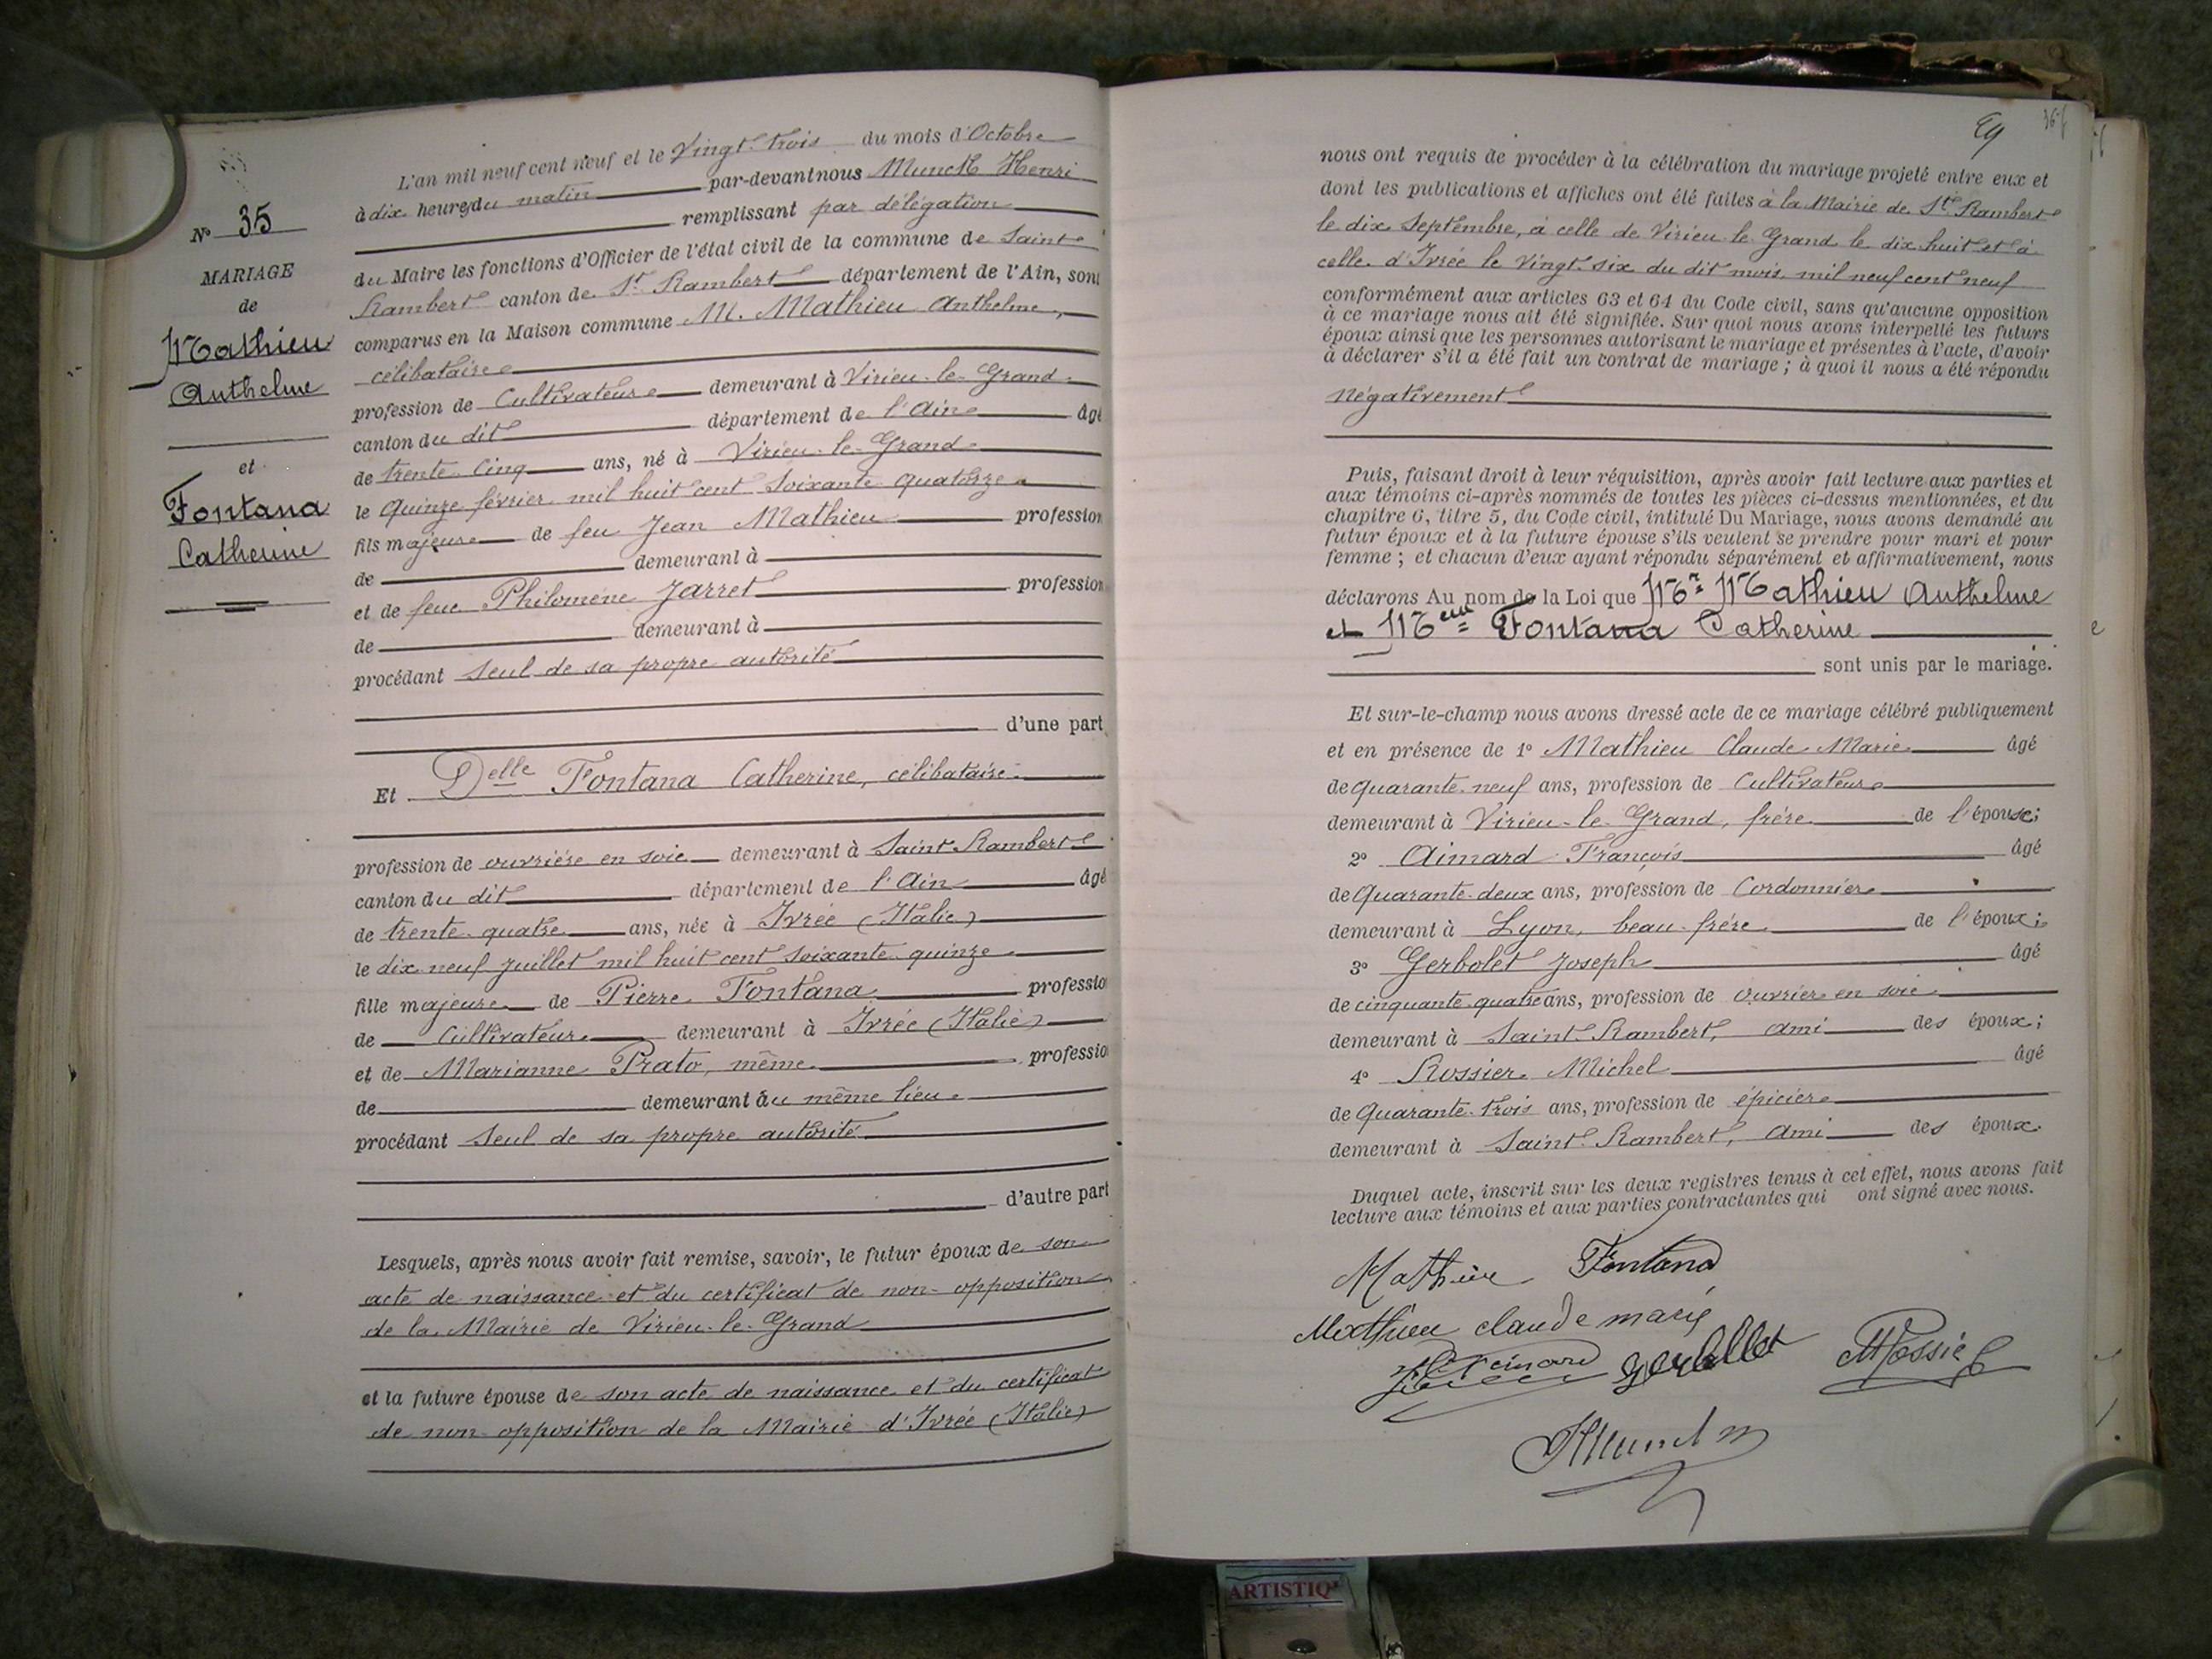 N° 35
MARIAGE
de
Mathieu
Anthelme
et
Fontana
Catherine
L'an mil neuf cent neuf et le Vingt-trois du mois d'Octobre
à dix heures du matin par-devant nous Munch Henri
remplissant par délégation
du Maire les fonctions d'Officier de l'état civil de la commune de Saint
Rambert canton de St Rambert département de l'Ain, sont
comparus en la Maison commune M. Mathieu Anthelme,
célibataire
profession de Cultivateur demeurant à Virieu-le-Grand
canton du dit département de l'Ain âgé
de trente cinq ans, né à Virieu-le-Grand
le Quinze février mil huit cent soixante quatorze
fils majeur de feu Jean Mathieu profession
de demeurant à
et de feue Philomène Jarret profession
de demeurant à
procédant seul de sa propre autorité
d'une part
Et Delle Fontana Catherine, célibataire
profession de ouvrière en soie demeurant à Saint Rambert
canton du dit département de l'Ain âgé
de trente-quatre ans, née à Ivrée (Italie)
le dix neuf juillet mil huit cent soixante-quinze
fille majeure de Pierre Fontana professio
de Cultivateur demeurant à Ivrée (Italie)
et de Marianne Prato, même professio
de demeurant au même lieu
procédant seul de sa propre autorité
d'autre part
Lesquels, après nous avoir fait remise, savoir, le futur époux de son
acte de naissance et du certificat de non-opposition
de la Mairie de Virieu-le-Grand
et la future épouse de son acte de naissance et du certificat
de non opposition de la Mairie d'Ivrée (Italie)
nous ont requis de procéder à la célébration du mariage projeté entre eux et
dont les publications et affiches ont été faites à la Mairie de St Rambert
le dix Septembre, à celle de Virieu le Grand le dix huit et à
celle d'Ivrée le vingt-six du dit mois mil neuf cent neuf
conformément aux articles 63 et 64 du Code civil, sans qu'aucune opposition
à ce mariage nous ait été signifiée. Sur quoi nous avons interpellé les futurs
époux ainsi que les personnes autorisant le mariage et présentes à l'acte, d'avoir
à déclarer s'il a été fait un contrat de mariage ; à quoi il nous a été répondu
négativement
Puis, faisant droit à leur réquisition, après avoir fait lecture aux parties et
aux témoins ci-après nommés de toutes les pièces ci-dessus mentionnées, et du
chapitre 6, titre 5, du Code civil, intitulé Du Mariage, nous avons demandé au
futur époux et à la future épouse s'ils veulent se prendre pour mari et pour
femme ; et chacun d'eux ayant répondu séparément et affirmativement, nous
déclarons Au nom de la Loi que Mr Mathieu Anthelme
et Melle Fontana Catherine
sont unis par le mariage.
Et sur-le-champ nous avons dressé acte de ce mariage célébré publiquement
et en présence de 1° Mathieu Claude Marie âgé
de quarante-neuf ans, profession de Cultivateur
demeurant à Virieu-le-Grand, frère de l'épouse;
2° Aimard François âgé
de Quarante-deux ans, profession de Cordonnier
demeurant à Lyon, beau-frère de l'époux;
3° Gerbolet Joseph âgé
de cinquante-quatre ans, profession de ouvrier en soie
demeurant à Saint-Rambert, ami des époux;
4° Rossier Michel âgé
de Quarante-trois ans, profession de épicier
demeurant à Saint-Rambert, ami des époux.
Duquel acte, inscrit sur les deux registres tenus à cet effet, nous avons fait
lecture aux témoins et aux parties contractantes qui ont signé avec nous.
Mathieu Fontana
Mathieu claude marie
ARTISTIQ